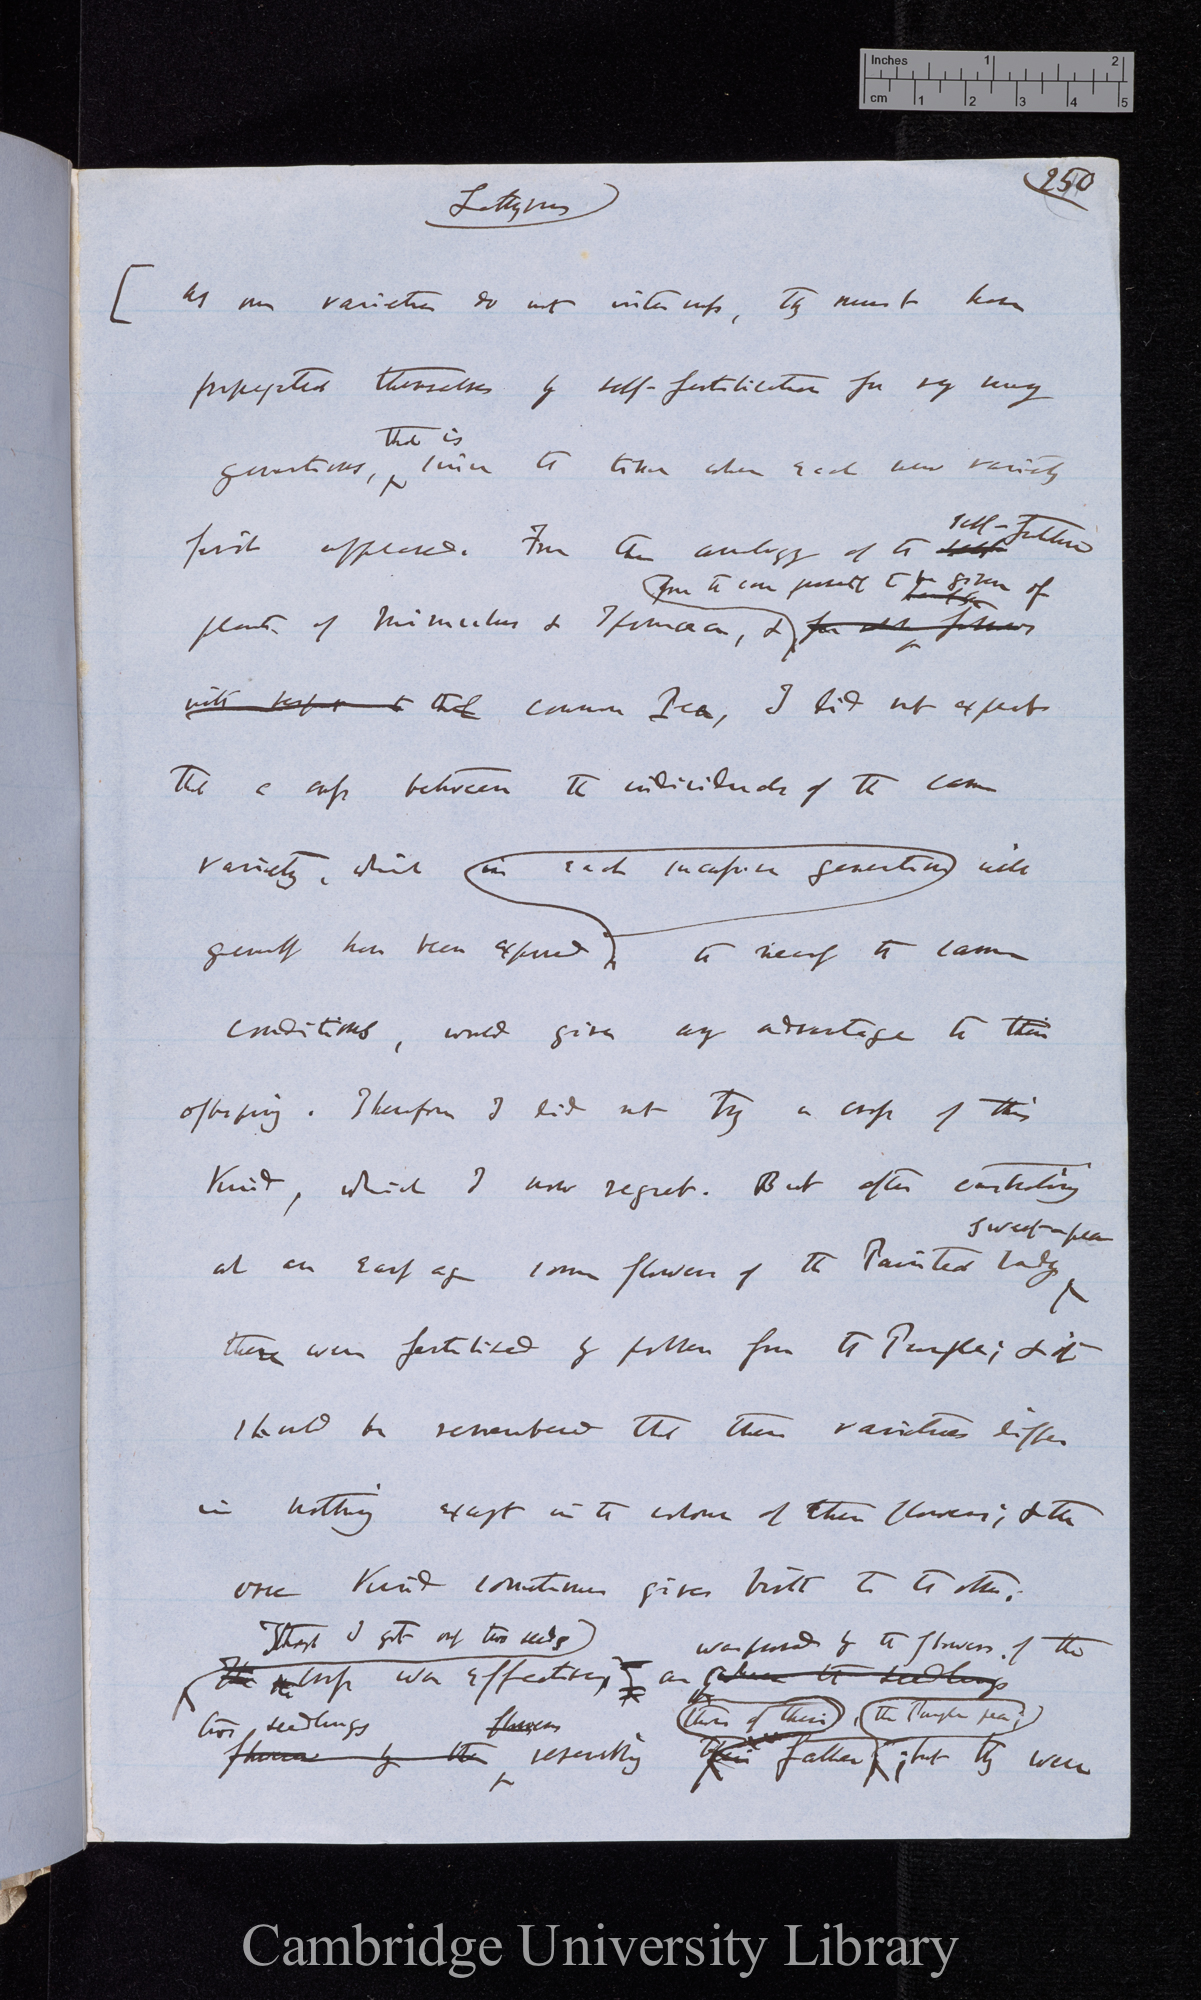 Inches 1 2
cm 1 2 3 4 5
250
Lathyrus
[ As our varieties do not intercross, they must have
propagated themselves by self-fertilisation for very many
that is
generations, since the time when each new variety
self-fertilised
first appeared. From the analogy of the
from the case presently to be given of
plants of Mimulus & Ipomoea, &
with respect to the common Pea, I did not expect
that a cross between the individuals of the same
variety, which in each successive generation will
generally have been exposed to nearly the same
conditions, would give any advantage to their
offspring. Therefore I did not try a cross of this
kind, which I now regret. But after castrating
sweet-pea
at an early age some flowers of the Painted Lady
these were fertilised by pollen from the Purple; & it
should be remembered that these varieties differ
in nothing except in the colour of their flowers; & the
one kind sometimes gives birth to the other.
(though I got only two seeds) was proved by the flowers of the
The cross was effective, as when the seedlings
two seedlings flowers those of their, the Purple pea;
flowers by the resembling their father; but they were
Cambridge University Library